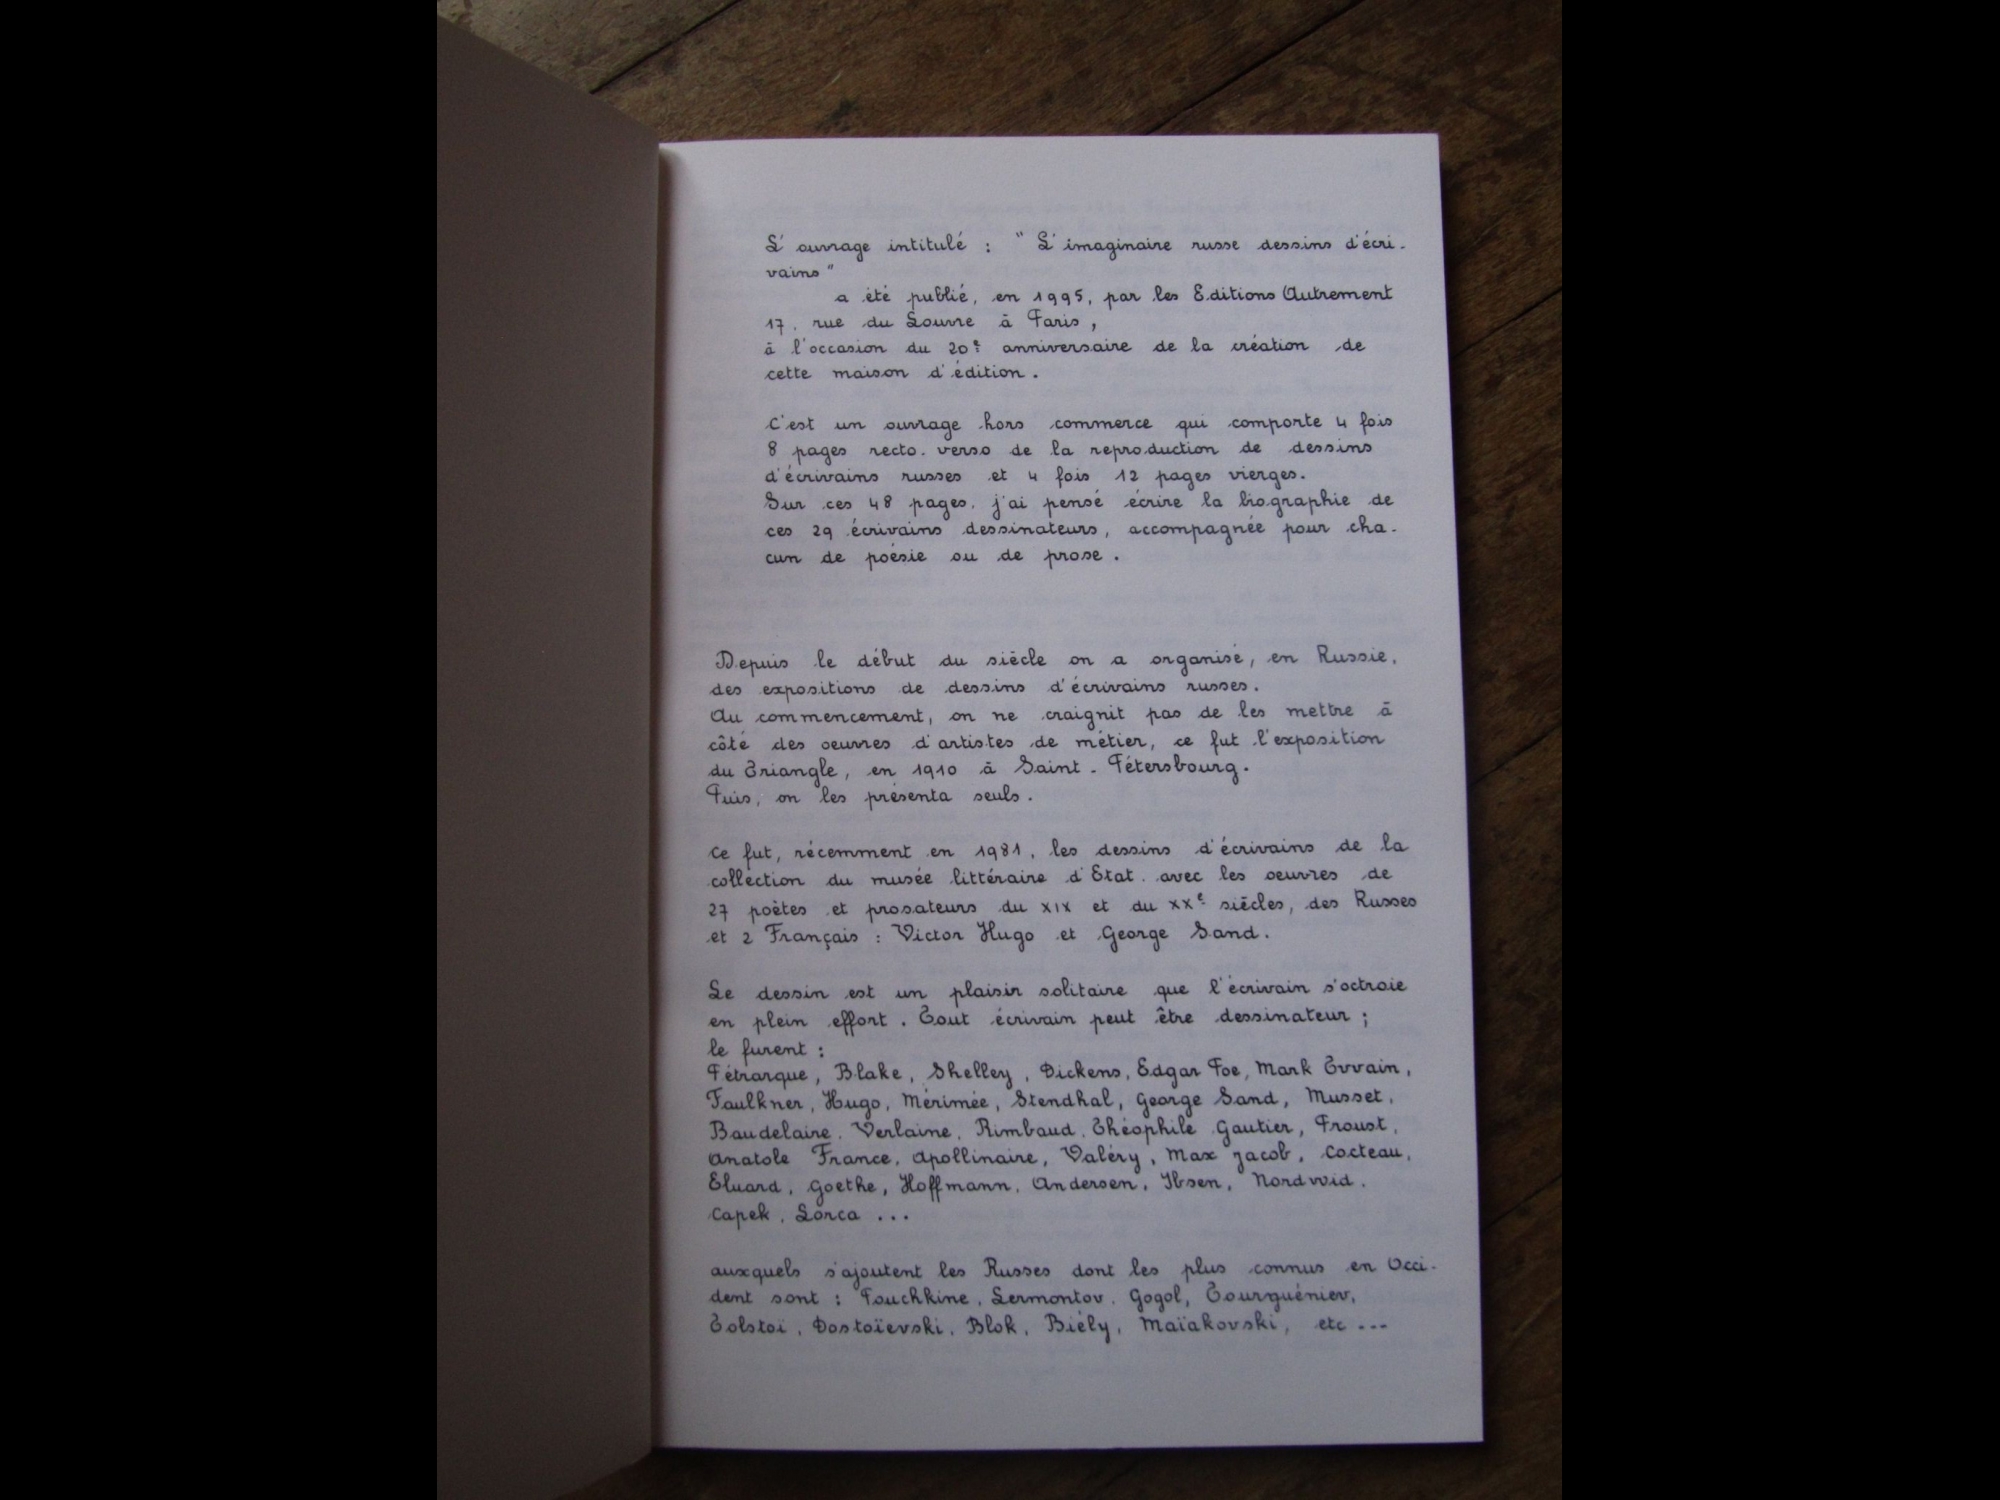 L'ouvrage intitulé : " L'imaginaire russe dessins d'écri-
vains "
a été publié, en 1995, par les Editions Autrement
17, rue du Louvre à Paris,
à l'occasion du 20e anniversaire de la création de
cette maison d'édition.
C'est un ouvrage hors commerce qui comporte 4 fois
8 pages recto-verso de la reproduction de dessins
d'écrivains russes et 4 fois 12 pages vierges.
Sur ces 48 pages, j'ai pensé écrire la biographie de
ces 29 écrivains dessinateurs, accompagnée pour cha-
cun de poésie ou de prose.
Depuis le début du siècle on a organisé, en Russie,
des expositions de dessins d'écrivains russes.
Au commencement, on ne craignit pas de les mettre à
côté des oeuvres d'artistes de métier, ce fut l'exposition
du Triangle, en 1910 à Saint-Pétersbourg.
Puis, on les présenta seuls.
Ce fut, récemment en 1981, les dessins d'écrivains de la
collection du musée littéraire d'Etat. avec les oeuvres de
27 poètes et prosateurs du XIX et du XXe siècles, des Russes
et 2 Français : Victor Hugo et George Sand.
Le dessin est un plaisir solitaire que l'écrivain s'octroie
en plein effort. Tout écrivain peut être dessinateur ;
le furent :
Pétrarque, Blake, Shelley, Dickens, Edgar Poe, Mark Twain,
Faulkner, Hugo, Mérimée, Stendhal, George Sand, Musset,
Baudelaire, Verlaine, Rimbaud, Théophile Gautier, Proust,
Anatole France, Apollinaire, Valéry, Max Jacob, Cocteau,
Eluard, Goethe, Hoffmann, Andersen, Ibsen, Nordwid,
Capek, Lorca ...
auxquels s'ajoutent les Russes dont les plus connus en Occi-
dent sont : Pouchkine, Lermontov, Gogol, Tourguéniev,
Tolstoï, Dostoïevski, Blok, Biély, Maïakovski, etc ...